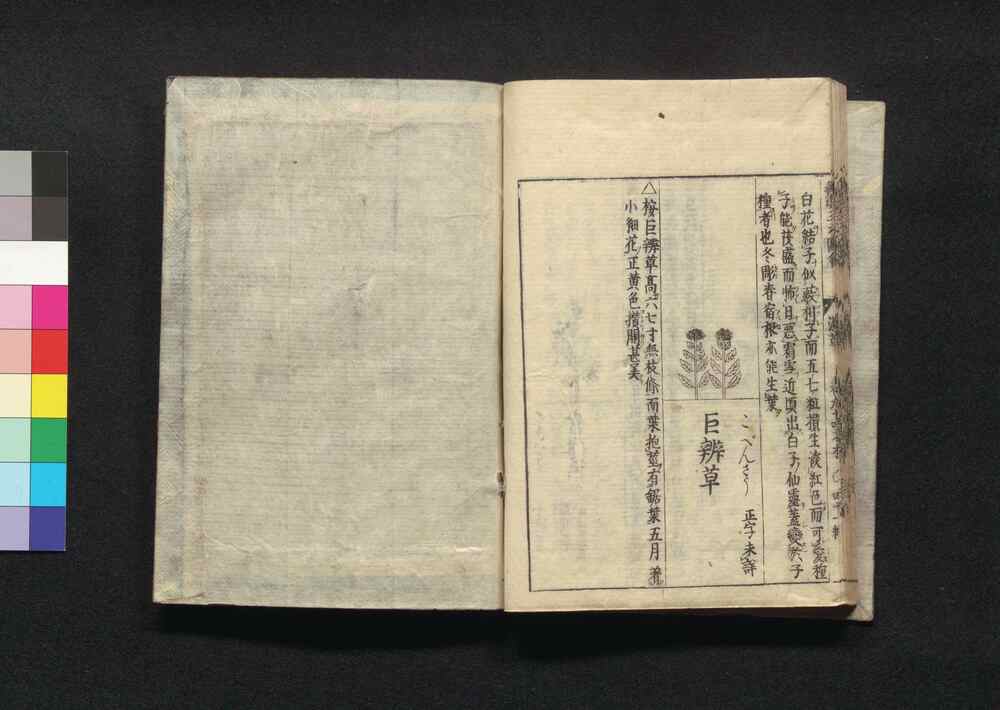 白花結子似蔽利子而五七粒攅生淡紅色而可愛種
子能茂盛而怖日悪霜雪近頃出白子仙霊蓋變於子
種者也冬彫春宿根亦能生葉
こべんさう
正字未詳
巨辨草
△按巨辨草高六七寸無枝條而葉抱莖有鋸葉五月
小細花正黄色攅開甚美